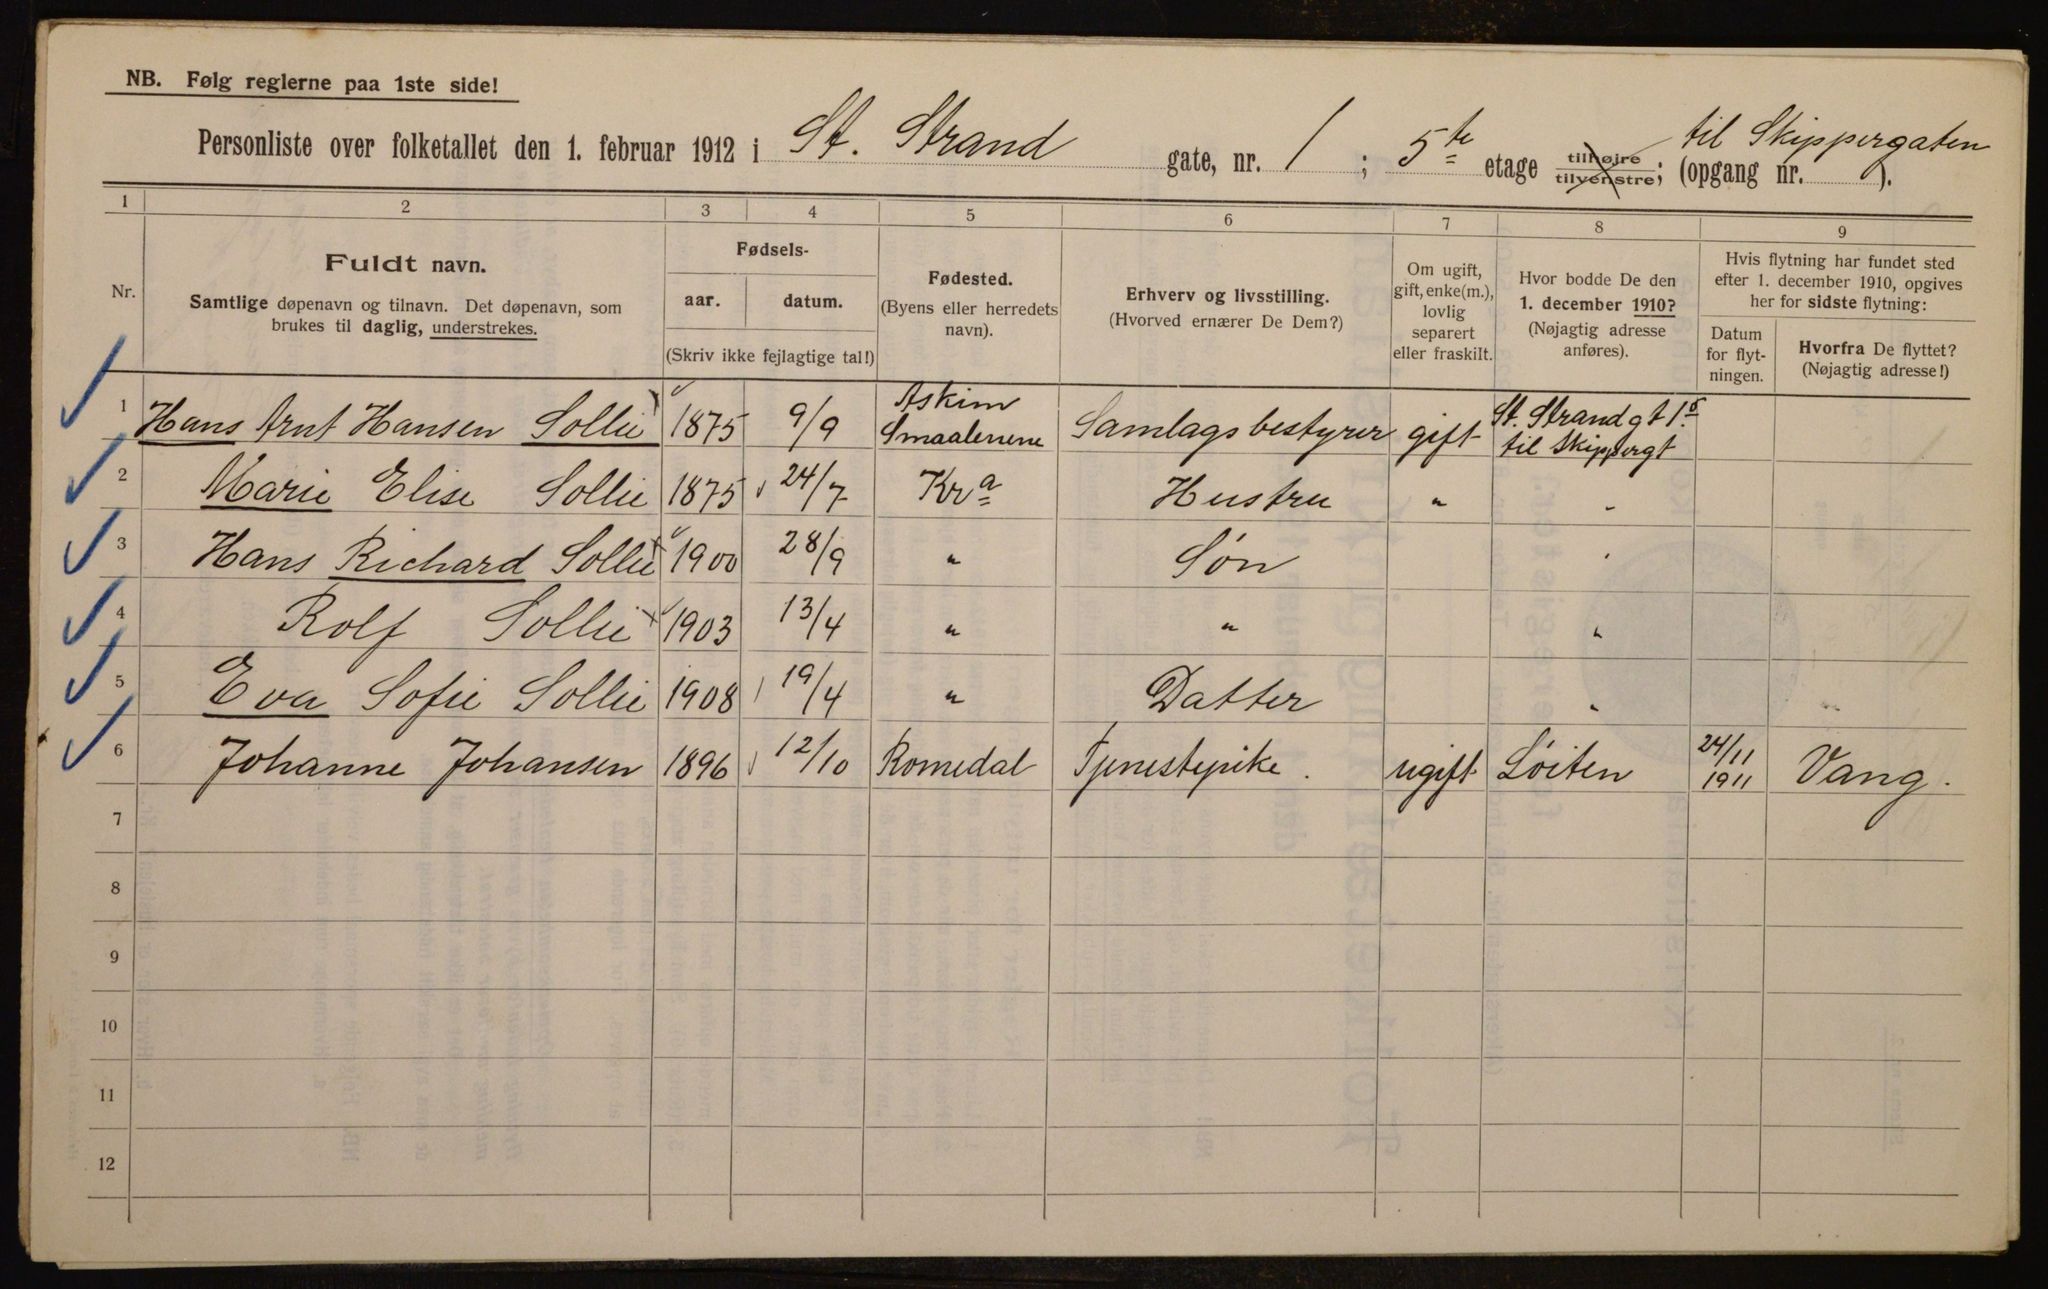 NB. Følg reglerne paa 1ste side!
Personliste over folketallet den 1. februar 1912 i St. Strand gate, nr. 1 ; 5te etage tilhøire tilvenstre; (opgang nr. ). til Skippergaten
1 2 3 4 5 6 7 8 9
Nr.
Fuldt navn.
Samtlige døpenavn og tilnavn. Det døpenavn, som
brukes til daglig, understrekes.
Fødsels-
aar. datum.
(Skriv ikke fejlagtige tal!)
Fødested.
(Byens eller herredets
navn).
Erhverv og livsstilling.
(Hvorved ernærer De Dem?)
Om ugift,
gift, enke(m.),
lovlig
separert
eller fraskilt.
Hvor bodde De den
1. december 1910?
(Nøjagtig adresse
anføres).
Hvis flytning har fundet sted
efter 1. december 1910, opgives
her for sidste flytning:
Datum
for flyt-
ningen.
Hvorfra De flyttet?
(Nøjagtig adresse!)
1 Hans Arnt Hansen Sollie 1875 9/9 Askim Smaalenene Samlagsbestyrer gift St. Strandgt 1 5 til Skippergt
2 Marie Elise Sollie 1875 24/7 Kra Hustru " "
3 Hans Richard Sollie 1900 28/9 " Søn "
4 Rolf Sollie 1903 13/4 " " "
5 Eva Sofie Sollie 1908 19/4 " Datter "
6 Johanne Johansen 1896 12/10 Romedal Tjenestepike. ugift Løiten 24/11 1911 Vang.
7
8
9
10
11
12